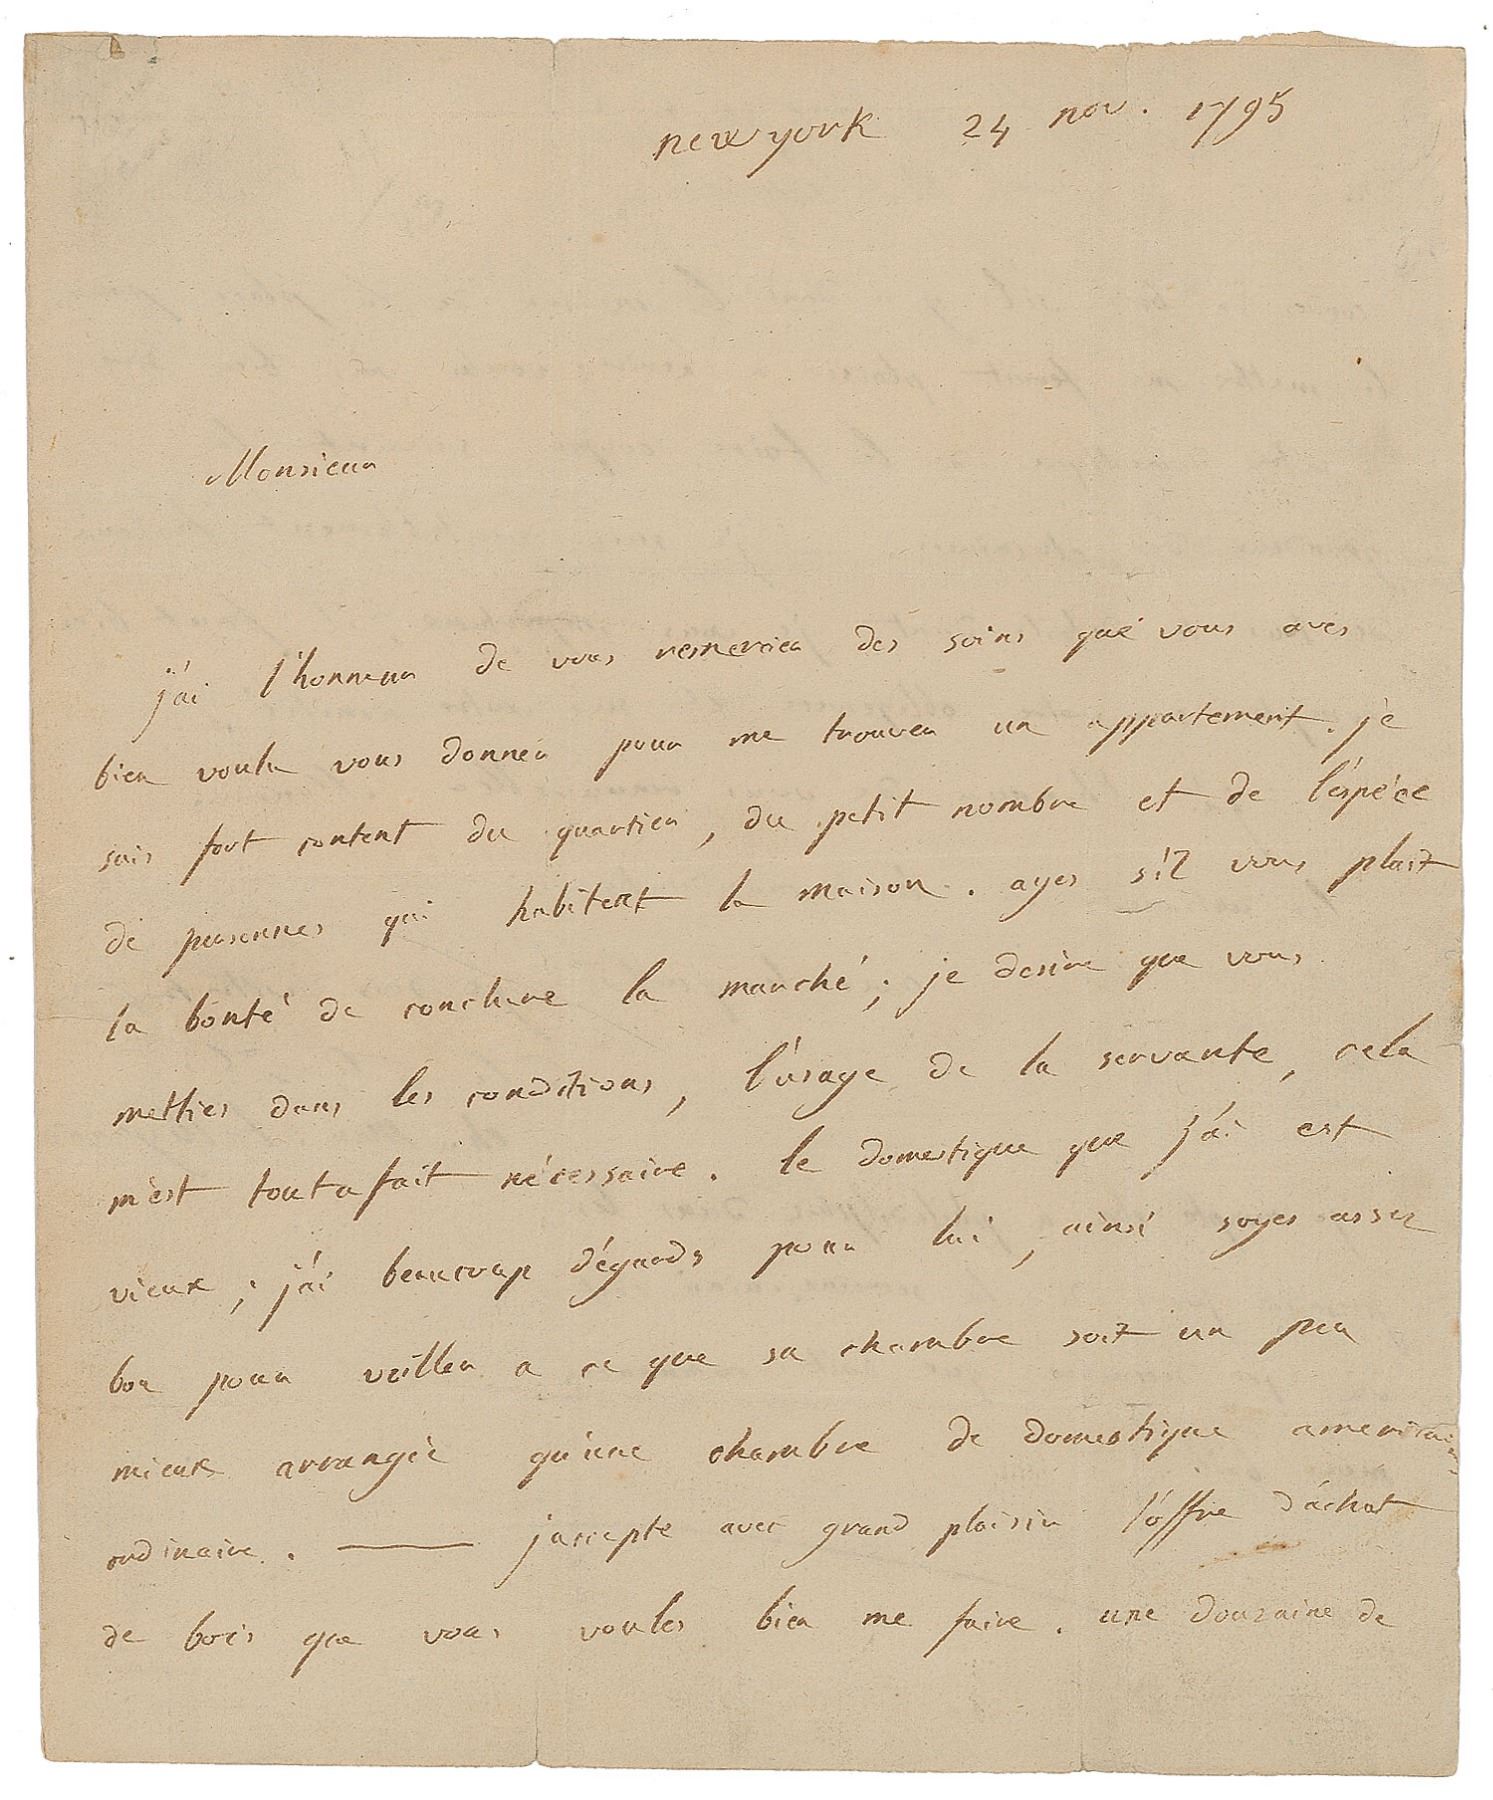 new york 24 nov. 1795
Monsieur
j'ai l'honneur de vous remercier des soins que vous aves
bien voulu vous donner pour me trouver un appartement. je
suis fort content du quartier, du petit nombre et de l'espéce
de personnes qui habitent la maison. ayes s'il vous plait
la bonté de conclure la marché; je desire que vous
metties dans les conditions, l'usage de la servante, cela
m'est tout a fait nécessaire. le domestique que j'ai est
vieux; j'ai beaucoup d'égards pour lui, ainsi soyes assez
bon pour veiller a ce que sa chambre soit un peu
mieux arrangée qu'une chambre de domestique
ordinaire. — j'accepte avec grand plaisir l'offre d'achat
de bois que vous voules bien me faire. une douzaine de